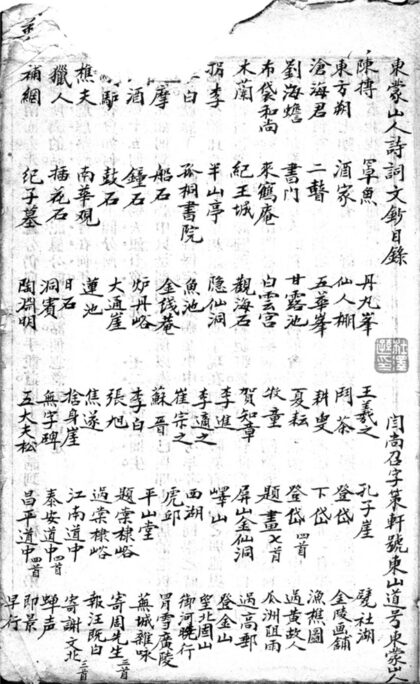 東蒙山人詩詞文鈔目錄
閆尚召字箓軒號東山道号東蒙山人
陳摶 罩魚 丹丸峯 王羲之 孔子崖 甓社湖
東方朔 酒家 仙人棚 鬥茶 登岱 金陵画舖
滄海君 二瞽 五華峯 耕叟 下岱 漁樵圖
劉海蟾 書門 甘露池 夏耘 登岱四首 過黄故人
布袋和尚 來鶴庵 白雲宮 牧童 題畫七首 瓜洲阻雨
木蘭 紀王城 觀海石 賀知章 屏山金仙洞 過高郵
李 半山亭 隐仙洞 李進 嶧山 登金山
白 孤桐書院 魚池 李適之 西湖 望北固山
摩 船石 金线菴 崔宗之 虎邱 御河曉行
酒 鐘石 炉丹峪 蘇晋 平山堂 冒雪廣陵
驢 鼓石 大通崖 李白 題棠棣峪 蕪城雜咏
樵夫 南華觀 蓮池 張旭 過棠棣峪 寄周先生三首
獵人 插花石 日石 焦遂 江南道中 報汪阮白
補網 紀子墓 洞賓 捨身崖 泰安道中四首 寄謝文北二首
陶淵明 無字碑 昌平道中四首 蟬声
五大夫松 即景
早行